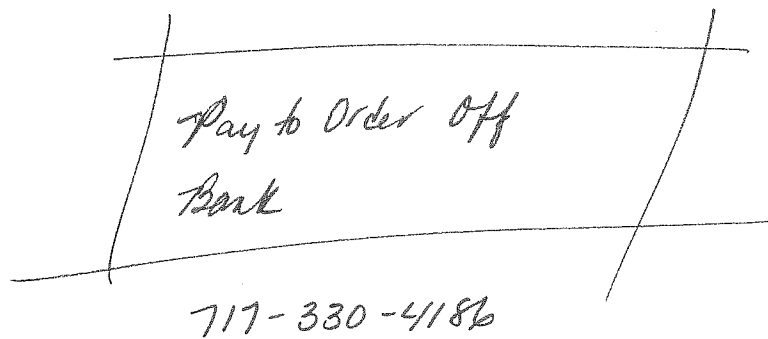 Pay to Order Off
Bank
717-330-4186